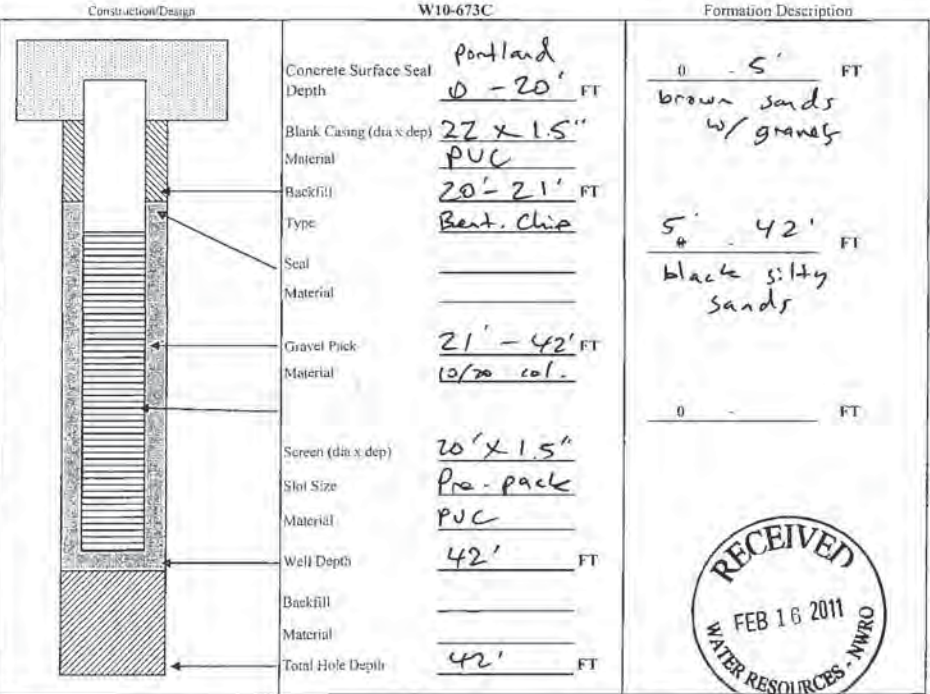 Construction/Design
W10-673C
Formation Description
Portland
Concrete Surface Seal
Depth 0 - 20' FT
Blank Casing (dia x dep) 22 x 1.5"
Material PVC
Backfill 20' - 21' FT
Type Bent. Chip
Seal
Material
Gravel Pack 21' - 42' FT
Material 10/20 col.
Screen (dia x dep) 20' x 1.5"
Slot Size Pre-pack
Material PVC
Well Depth 42' FT
Backfill
Material
Total Hole Depth 42' FT
0 - 5' FT
brown sands
w/ gravels
5' - 42' FT
black silty
sands
0 - FT
RECEIVED
FEB 16 2011
WATER RESOURCES - NWRO